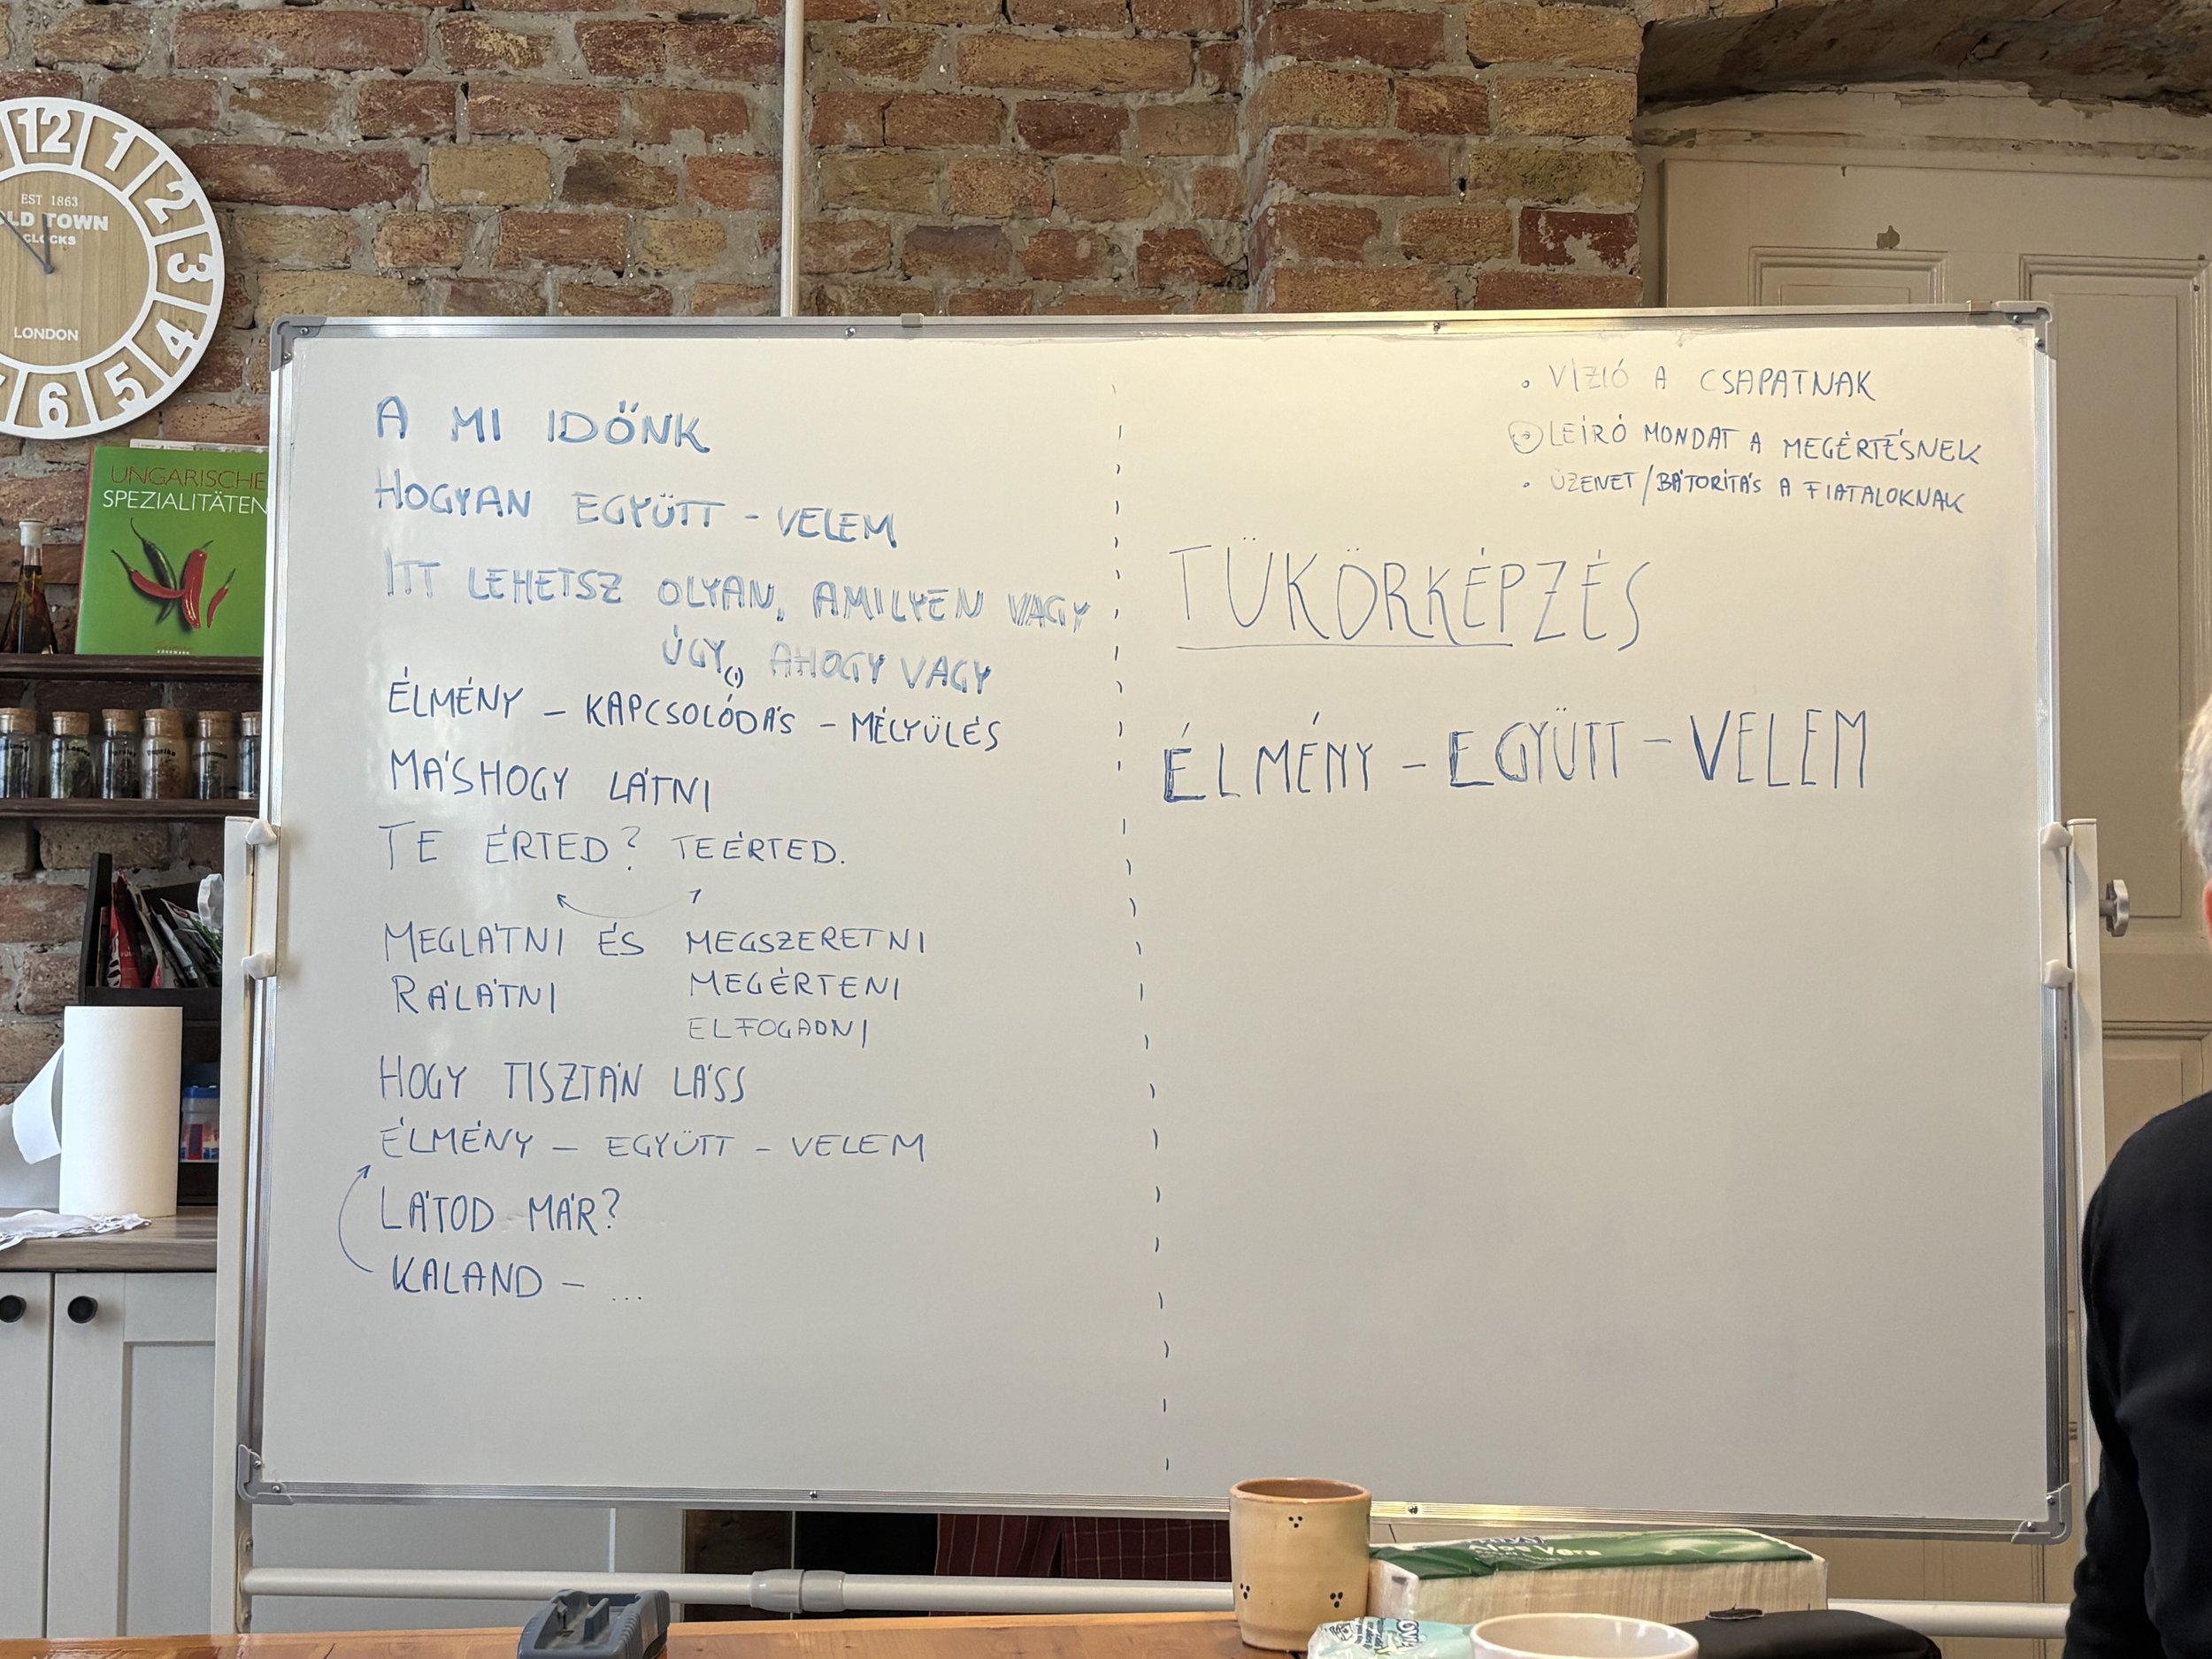 12
1
2
3
4
5
6
EST 1863
LD TOWN
CLOCKS
LONDON
UNGARISCHE
SPEZIALITÄTEN
A MI IDŐNK
HOGYAN EGYÜTT - VELEM
ITT LEHETSZ OLYAN, AMILYEN VAGY
ÚGY(,) AHOGY VAGY
ÉLMÉNY - KAPCSOLÓDÁS - MÉLYÜLÉS
MÁSHOGY LÁTNI
TE ÉRTED? TEÉRTED.
MEGLÁTNI ÉS MEGSZERETNI
RÁLÁTNI MEGÉRTENI
ELFOGADNI
HOGY TISZTÁN LÁSS
ÉLMÉNY - EGYÜTT - VELEM
LÁTOD MÁR?
KALAND - ...
• VÍZIÓ A CSAPATNAK
• LEÍRÓ MONDAT A MEGÉRTÉSNEK
• ÜZENET/BÁTORÍTÁS A FIATALOKNAK
TÜKÖRKÉPZÉS
ÉLMÉNY - EGYÜTT - VELEM
Aloe Vera